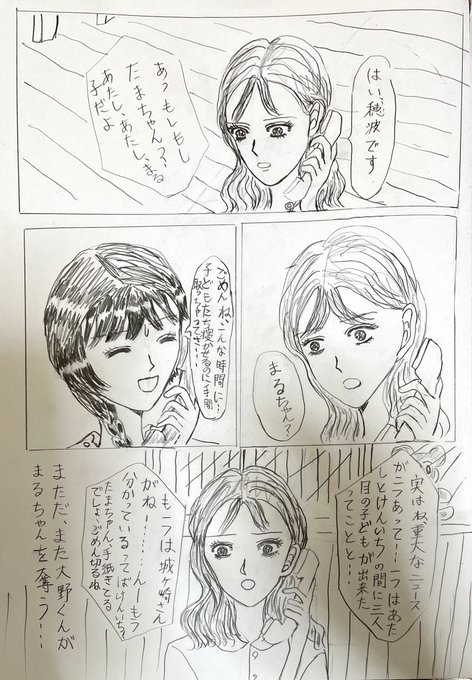 はい、穂波です
あっもしもし
たまちゃんっ?
あたし、あたし、まる
子だよ
まるちゃん?
ごめんね、こんな時間に…
子どもたち寝かせるのに手間
取っちゃってさ…
実はね重大なニュース
が二つあって!一つはあた
しとけんいちの間に三人
目の子どもが出来た
ってことと…
もう一つは城ヶ崎さん
がね……んーもう
分かっているってばけんいち?
たまちゃん、手紙するね
でしょ、ごめん切るね
まただ、また大野くんが
まるちゃんを奪う…